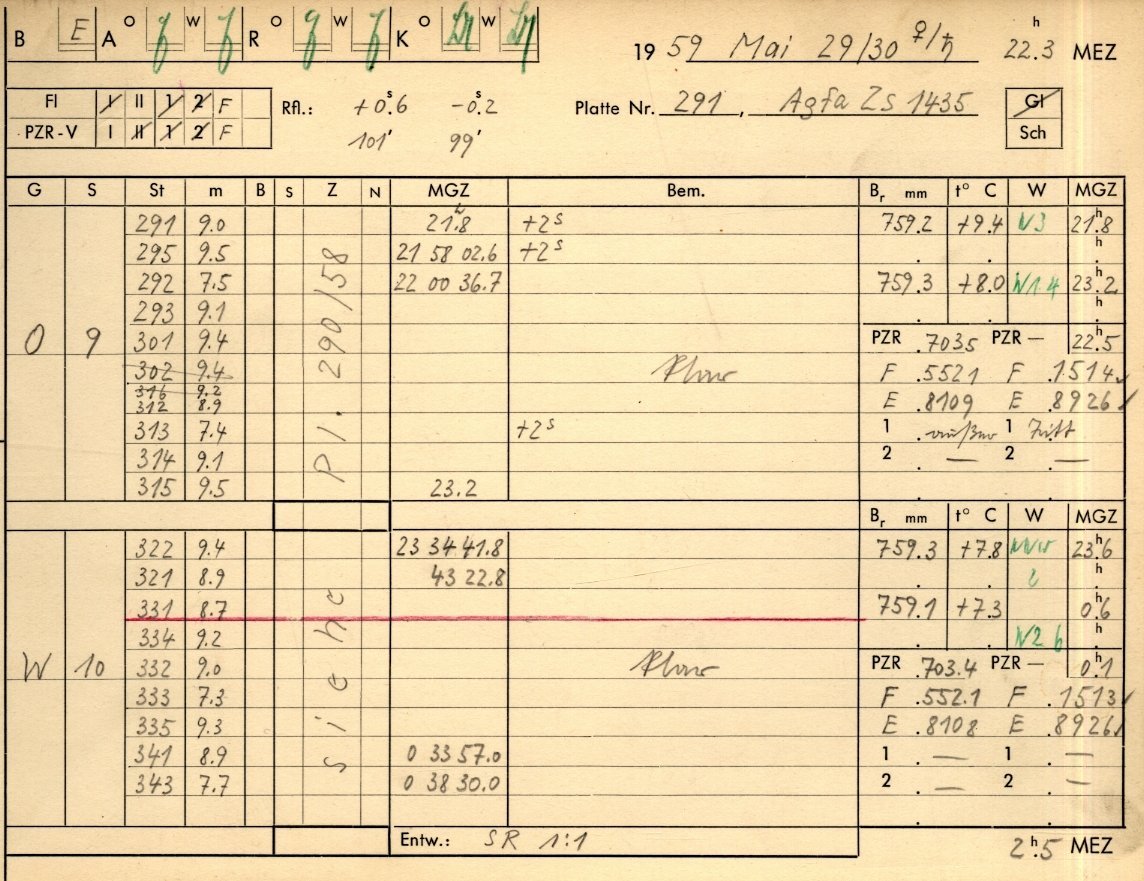 B E A O W R O W K O W
19 59 Mai 29/30 ♀/♄ 22.3 h MEZ
Fl I II 1 2 F
PZR-V I II 1 2 F
Rfl.: +0.6 s -0.2 s
101' 99'
Platte Nr. 291, Agfa Zs 1435
Gl
Sch
G S St m B S Z N MGZ Bem. Br mm t° C W MGZ
291 9.0 21.8 h +2s 759.2 +9.4 W3 21.8 h
295 9.5 21 58 02.6 +2s . . . h
292 7.5 22 00 36.7 759.3 +8.0 W1.4 23.2
293 9.1 . . . h
O 9 301 9.4 PZR .7035 PZR – 22.5 h
302 9.4 F .5521 F .1514
316 9.2
312 8.9 E .8109 E .8926
313 7.4 +2s 1 . außer 1 Tritt
314 9.1 2 . — 2 . —
315 9.5 23.2
Pl. 290/58
Br mm t° C W MGZ
322 9.4 23 34 41.8 759.3 +7.8 23.6 h
321 8.9 43 22.8 . . . h
331 8.7 759.1 +7.3 0.6
334 9.2 . . W2 h
W 10 332 9.0 PZR .703.4 PZR – 0.1 h
333 7.3 F .552.1 F .1513
335 9.3 E .8108 E .8926
341 8.9 0 33 57.0 1 . — 1 . —
343 7.7 0 38 30.0 2 . — 2 . —
siehe
Entw.: SR 1:1
2.5 h MEZ